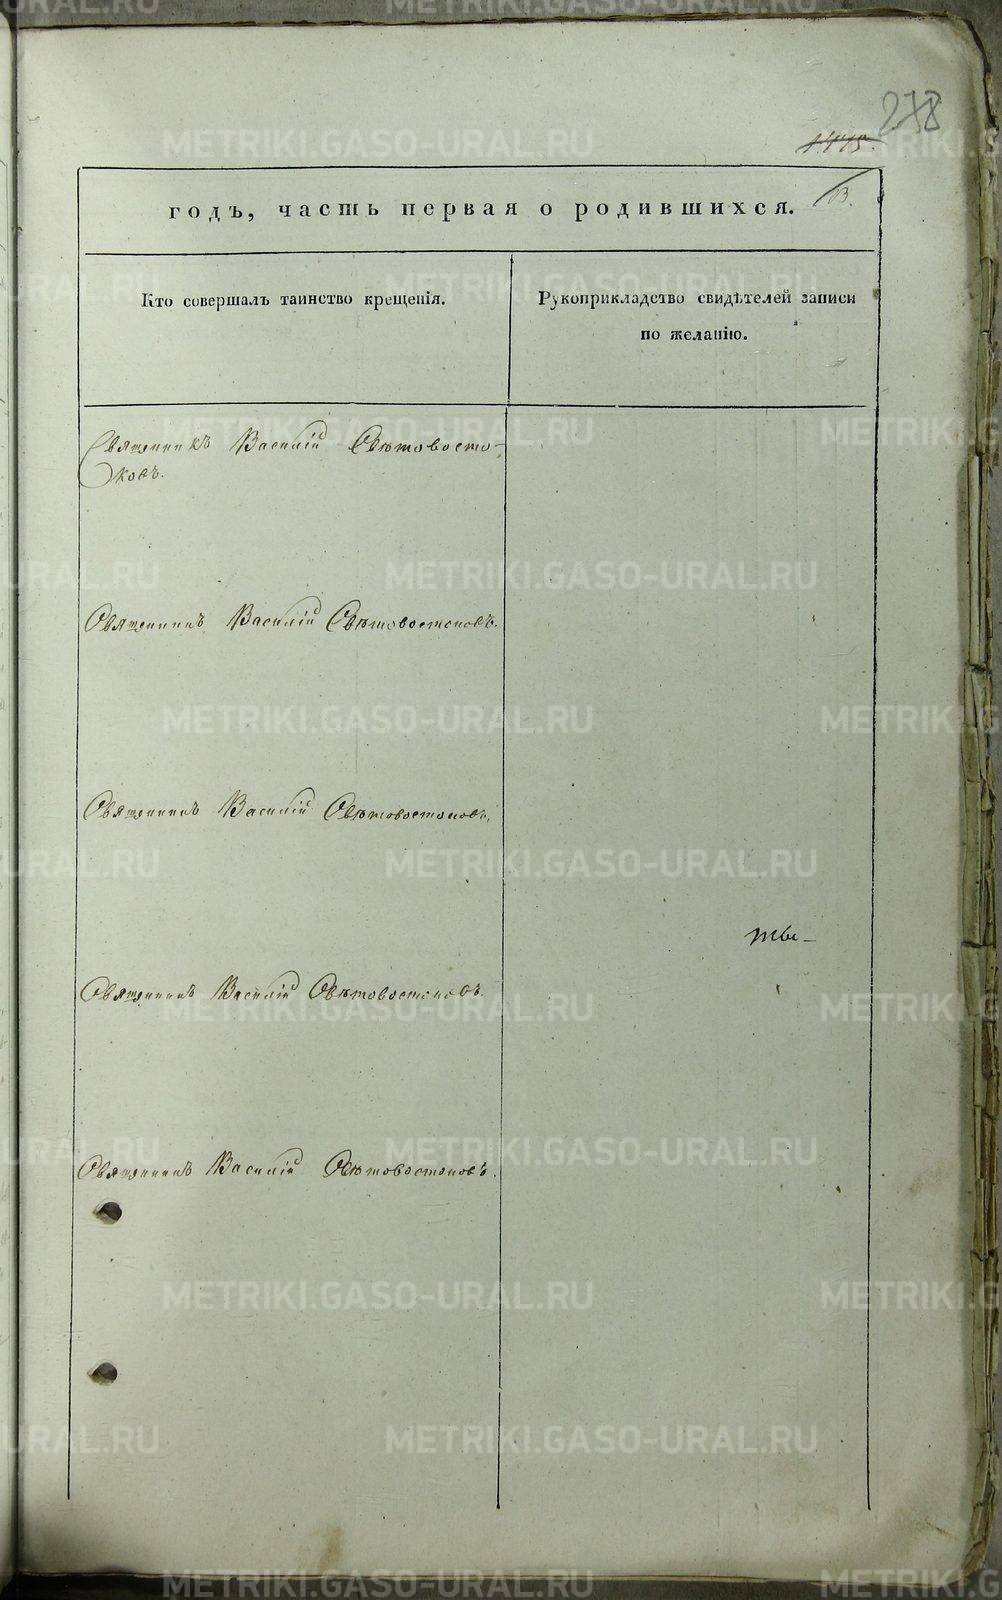 278
1115.
13.
годъ, часть первая о родившихся.
Кто совершалъ таинство крещенія.
Рукоприкладство свидѣтелей записи
по желанію.
Священникъ Василій Свѣтовосто-
ковъ.
Священникъ Василій Свѣтовостоковъ.
Священникъ Василій Свѣтовостоковъ,
Священникъ Василій Свѣтовостоковъ.
Священникъ Василій Свѣтовостоковъ.
METRIKI.GASO-URAL.RU